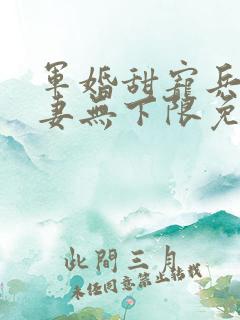 軍婚甜寵兵
妻無下限免
此間三月
未經同意禁止轉載